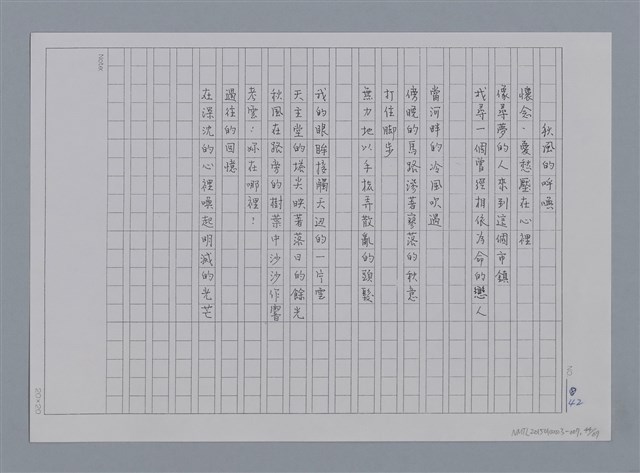 秋風的呼喚
懷念·憂愁壓在心裡
像尋夢的人來到這個市鎮
找尋一個曾經相依為命的戀人
當河畔的冷風吹過
傍晚的馬路滲著寥落的秋意
打住脚步
無力地以手指弄散亂的頭髮
我的眼眸接觸天边的一片雲
天主堂的塔尖映著落日的餘光
秋風在路旁的樹葉中沙沙作響
老雲:妳在哪裡!
過往的回憶
在深沈的心裡喚起明滅的光芒
Note:
20×20
8
42